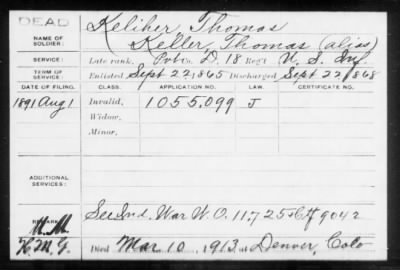 DEAD
Keliher Thomas
NAME OF SOLDIER:
Keller, Thomas (alias)
SERVICE:
Late rank, Pvt Co. D. 18 Reg't U. S. Inf.
TERM OF SERVICE:
Enlisted Sept 22, 1865 Discharged Sept 22, 1868
DATE OF FILING. CLASS. APPLICATION NO. LAW. CERTIFICATE NO.
1891 Aug 1 Invalid, 1055,099 J
Widow,
Minor,
ADDITIONAL SERVICES:
See Ind. War W.O. 11,725 Ctf 9042
REMARKS:
Died Mar 10, 1913 at Denver, Colo